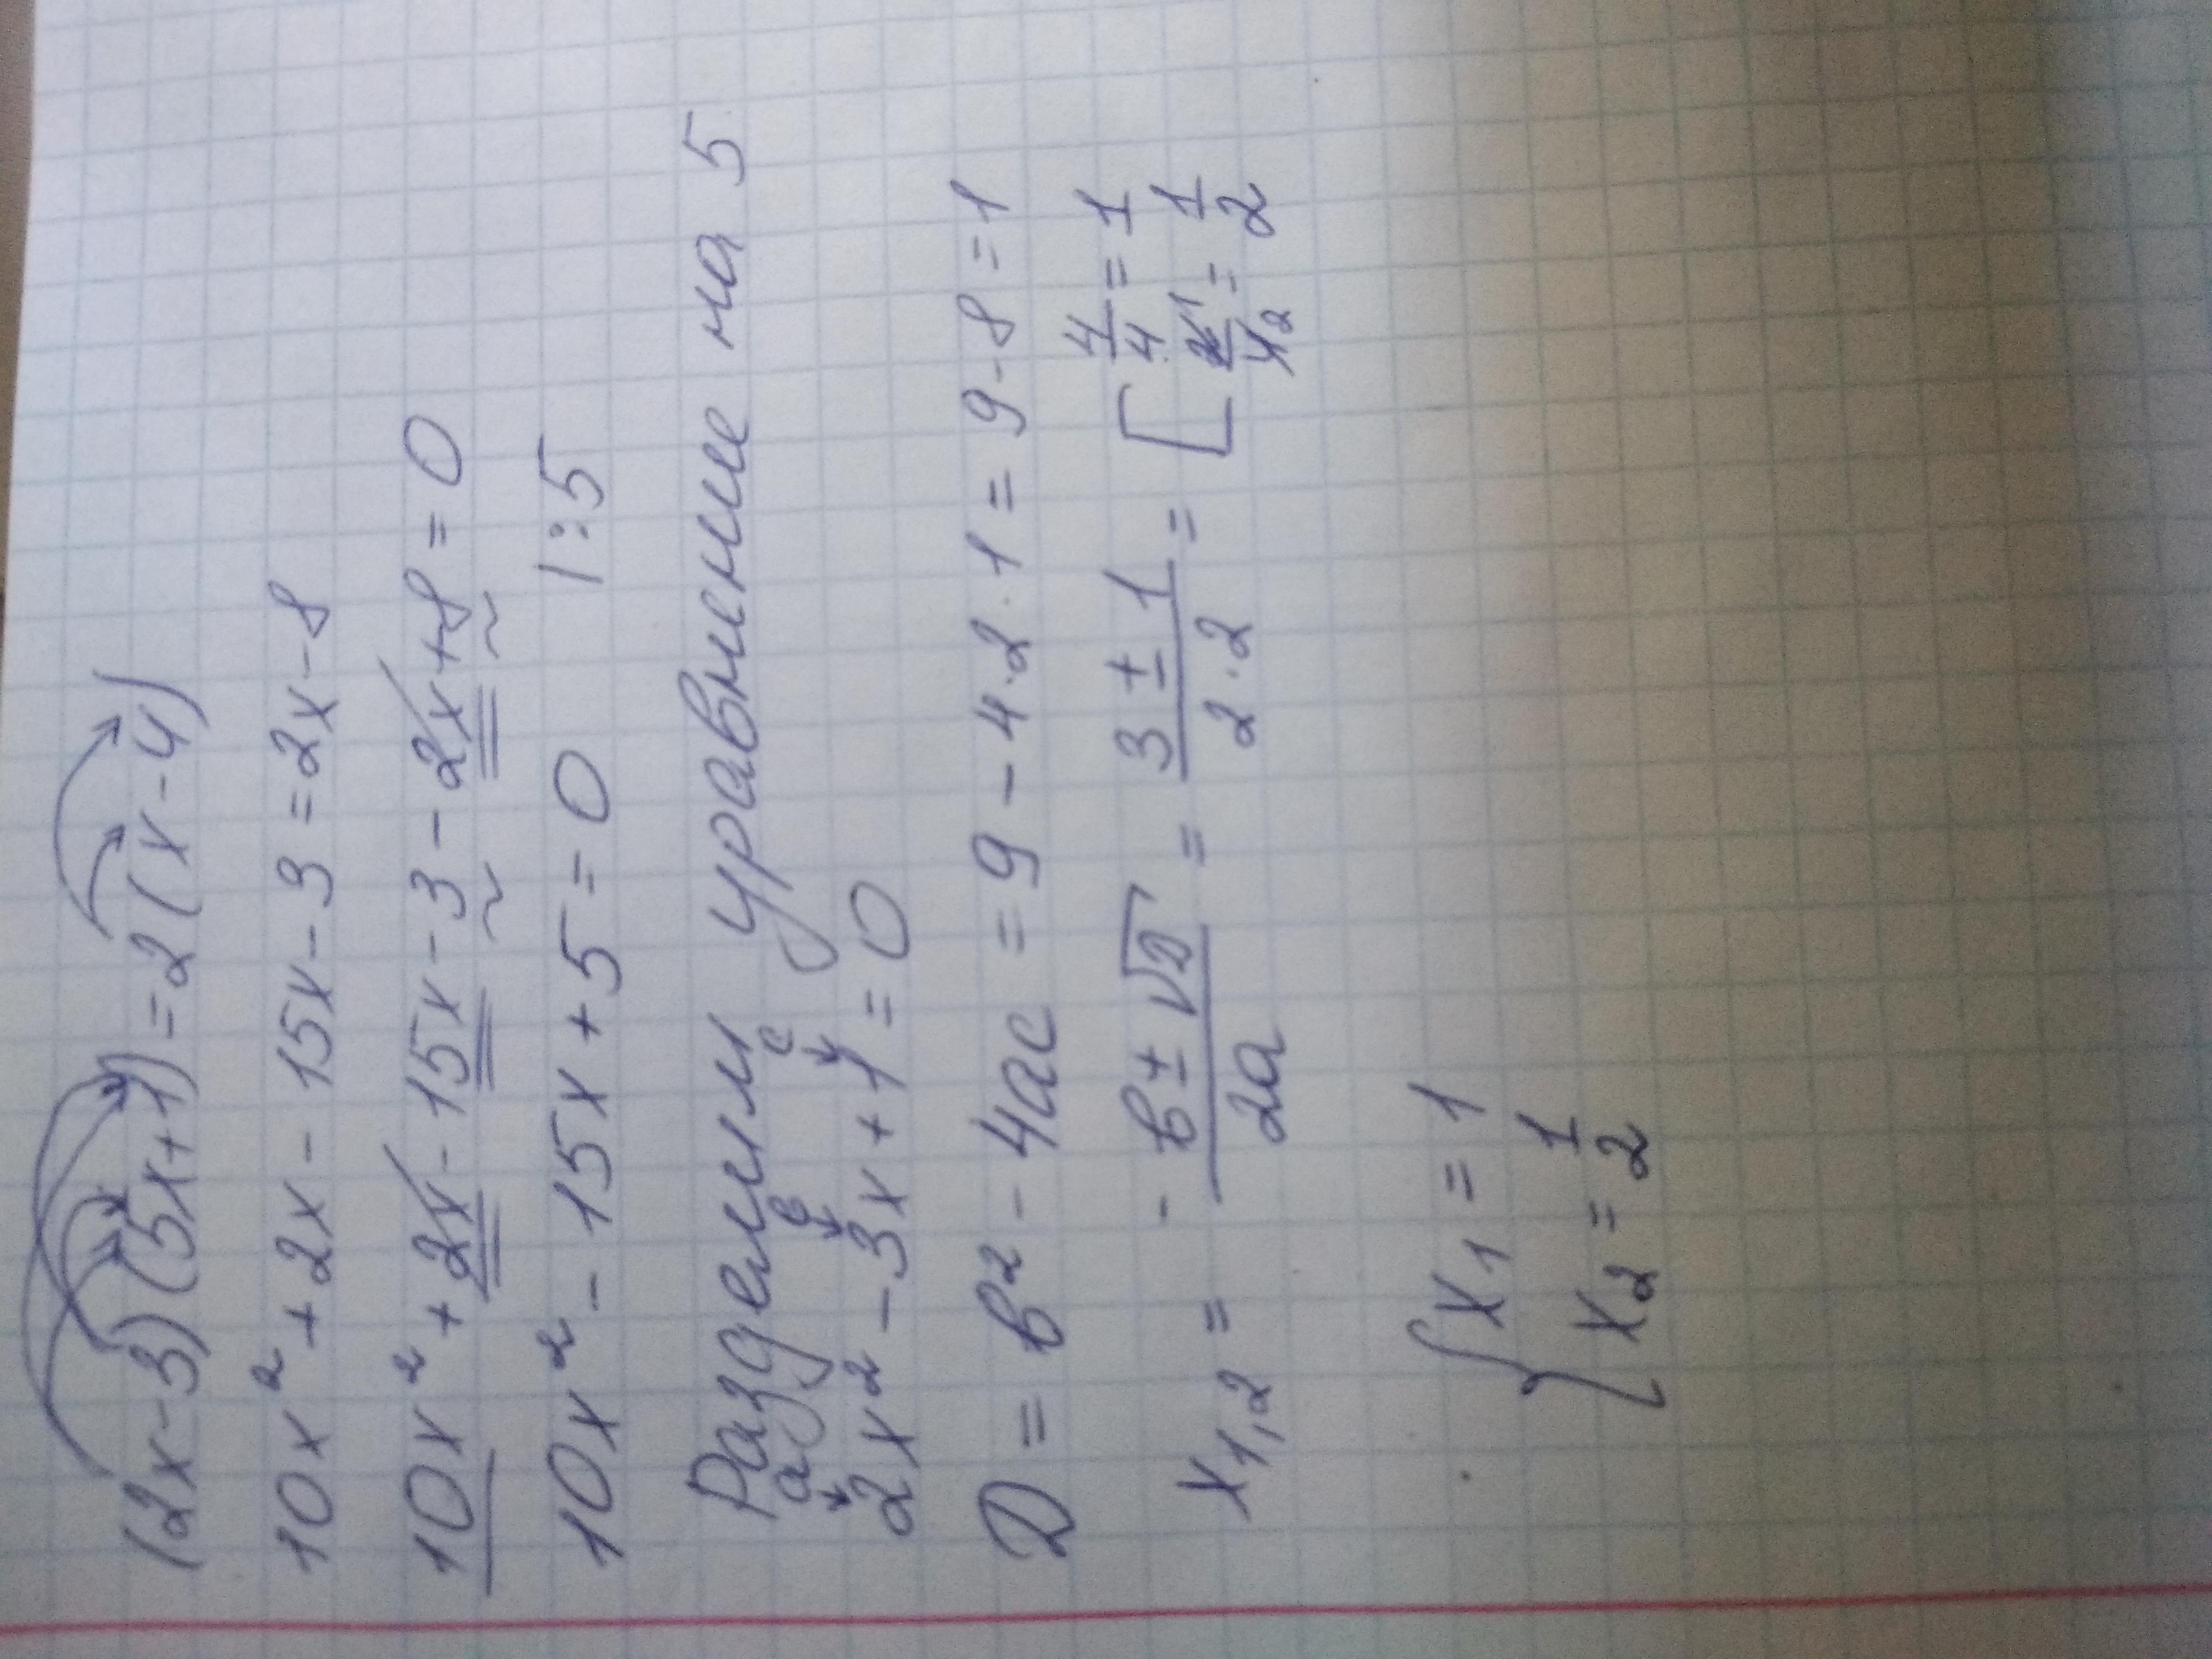 (2x-3)(5x+1)=2(x-4)
10x²+2x-15x-3=2x-8
10x²+2x-15x-3-2x+8=0
10x²-15x+5=0 |:5
Разделим уравнение на 5
a b c
2x²-3x+1=0
D=b²-4ac=9-4·2·1=9-8=1
x1,2 = -b±√D/2a = 3±1/2·2 = [4/4=1
2/4=1/2
{x1=1
x2=1/2